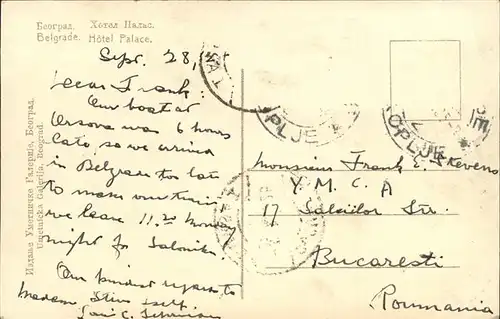 Београд. Хотел Палас.
Belgrade. Hôtel Palace.
Sept. 28,
Dear Frank:
Our boat at
Orsova was 6 hours
late, so we arrived
in Belgrade too late
to make our train,
we leave 11.20
night for Salonika.
Our kindest regards to
Madam self.
Издање Уметничке Галерије, Београд.
Umetnička Galerija, Beograd.
OPLJE
OPLJE
Monsieur Frank E. Stevens
Y. M. C. A
17 Str.
Bucaresti
Roumania